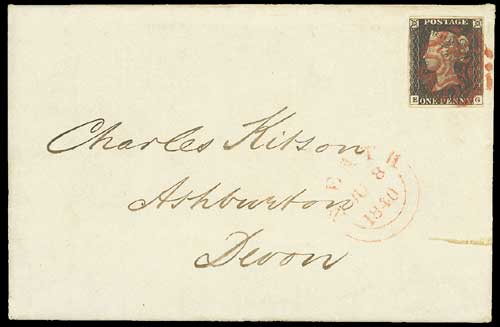 POSTAGE
E ONE PENNY G
Charles Kitson
Ashburton
Devon
8
1840